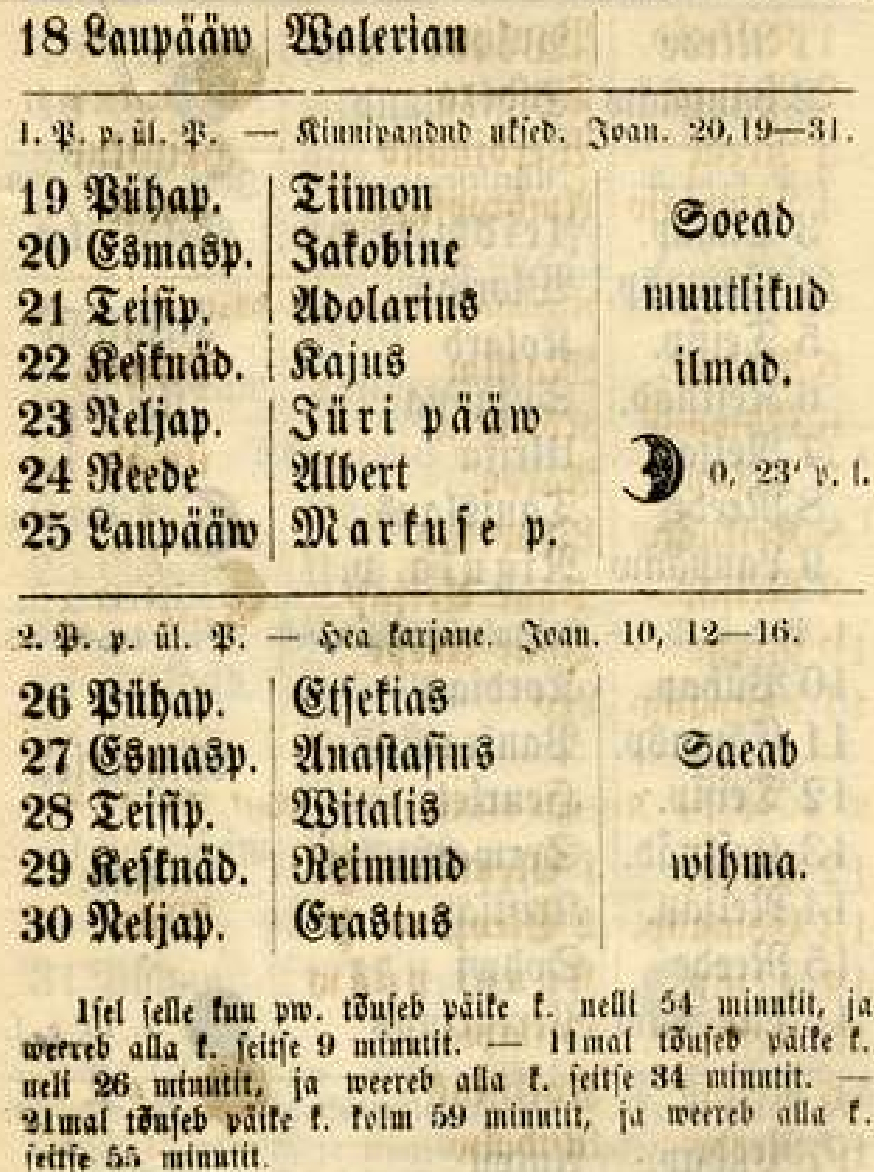 18 Laupääw Walerian
1. P. p. ül. P. — Kinnipandud uksed. Joan. 20,19—31.
19 Pühap. Tiimon
20 Esmasp. Jakobine
21 Teisip. Adolarius
22 Kesknäd. Kajus
23 Neljap. Jüri pääw
24 Reede Albert
25 Laupääw Markuse p.
Soead
muutlikud
ilmad.
0, 23' p. l.
2. P. p. ül. P. — Hea karjane. Joan. 10, 12—16.
26 Pühap. Etsekias
27 Esmasp. Anastasius
28 Teisip. Witalis
29 Kesknäd. Reimund
30 Neljap. Erastus
Saeab
wihma.
1sel selle kuu pw. tõuseb päike k. nelli 54 minutit, ja
weereb alla k. seitse 9 minutit. — 11mal tõuseb päike k.
neli 26 minutit, ja weereb alla k. seitse 34 minutit. —
21mal tõuseb päike k. kolm 59 minutit, ja weereb alla k.
seitse 55 minutit.